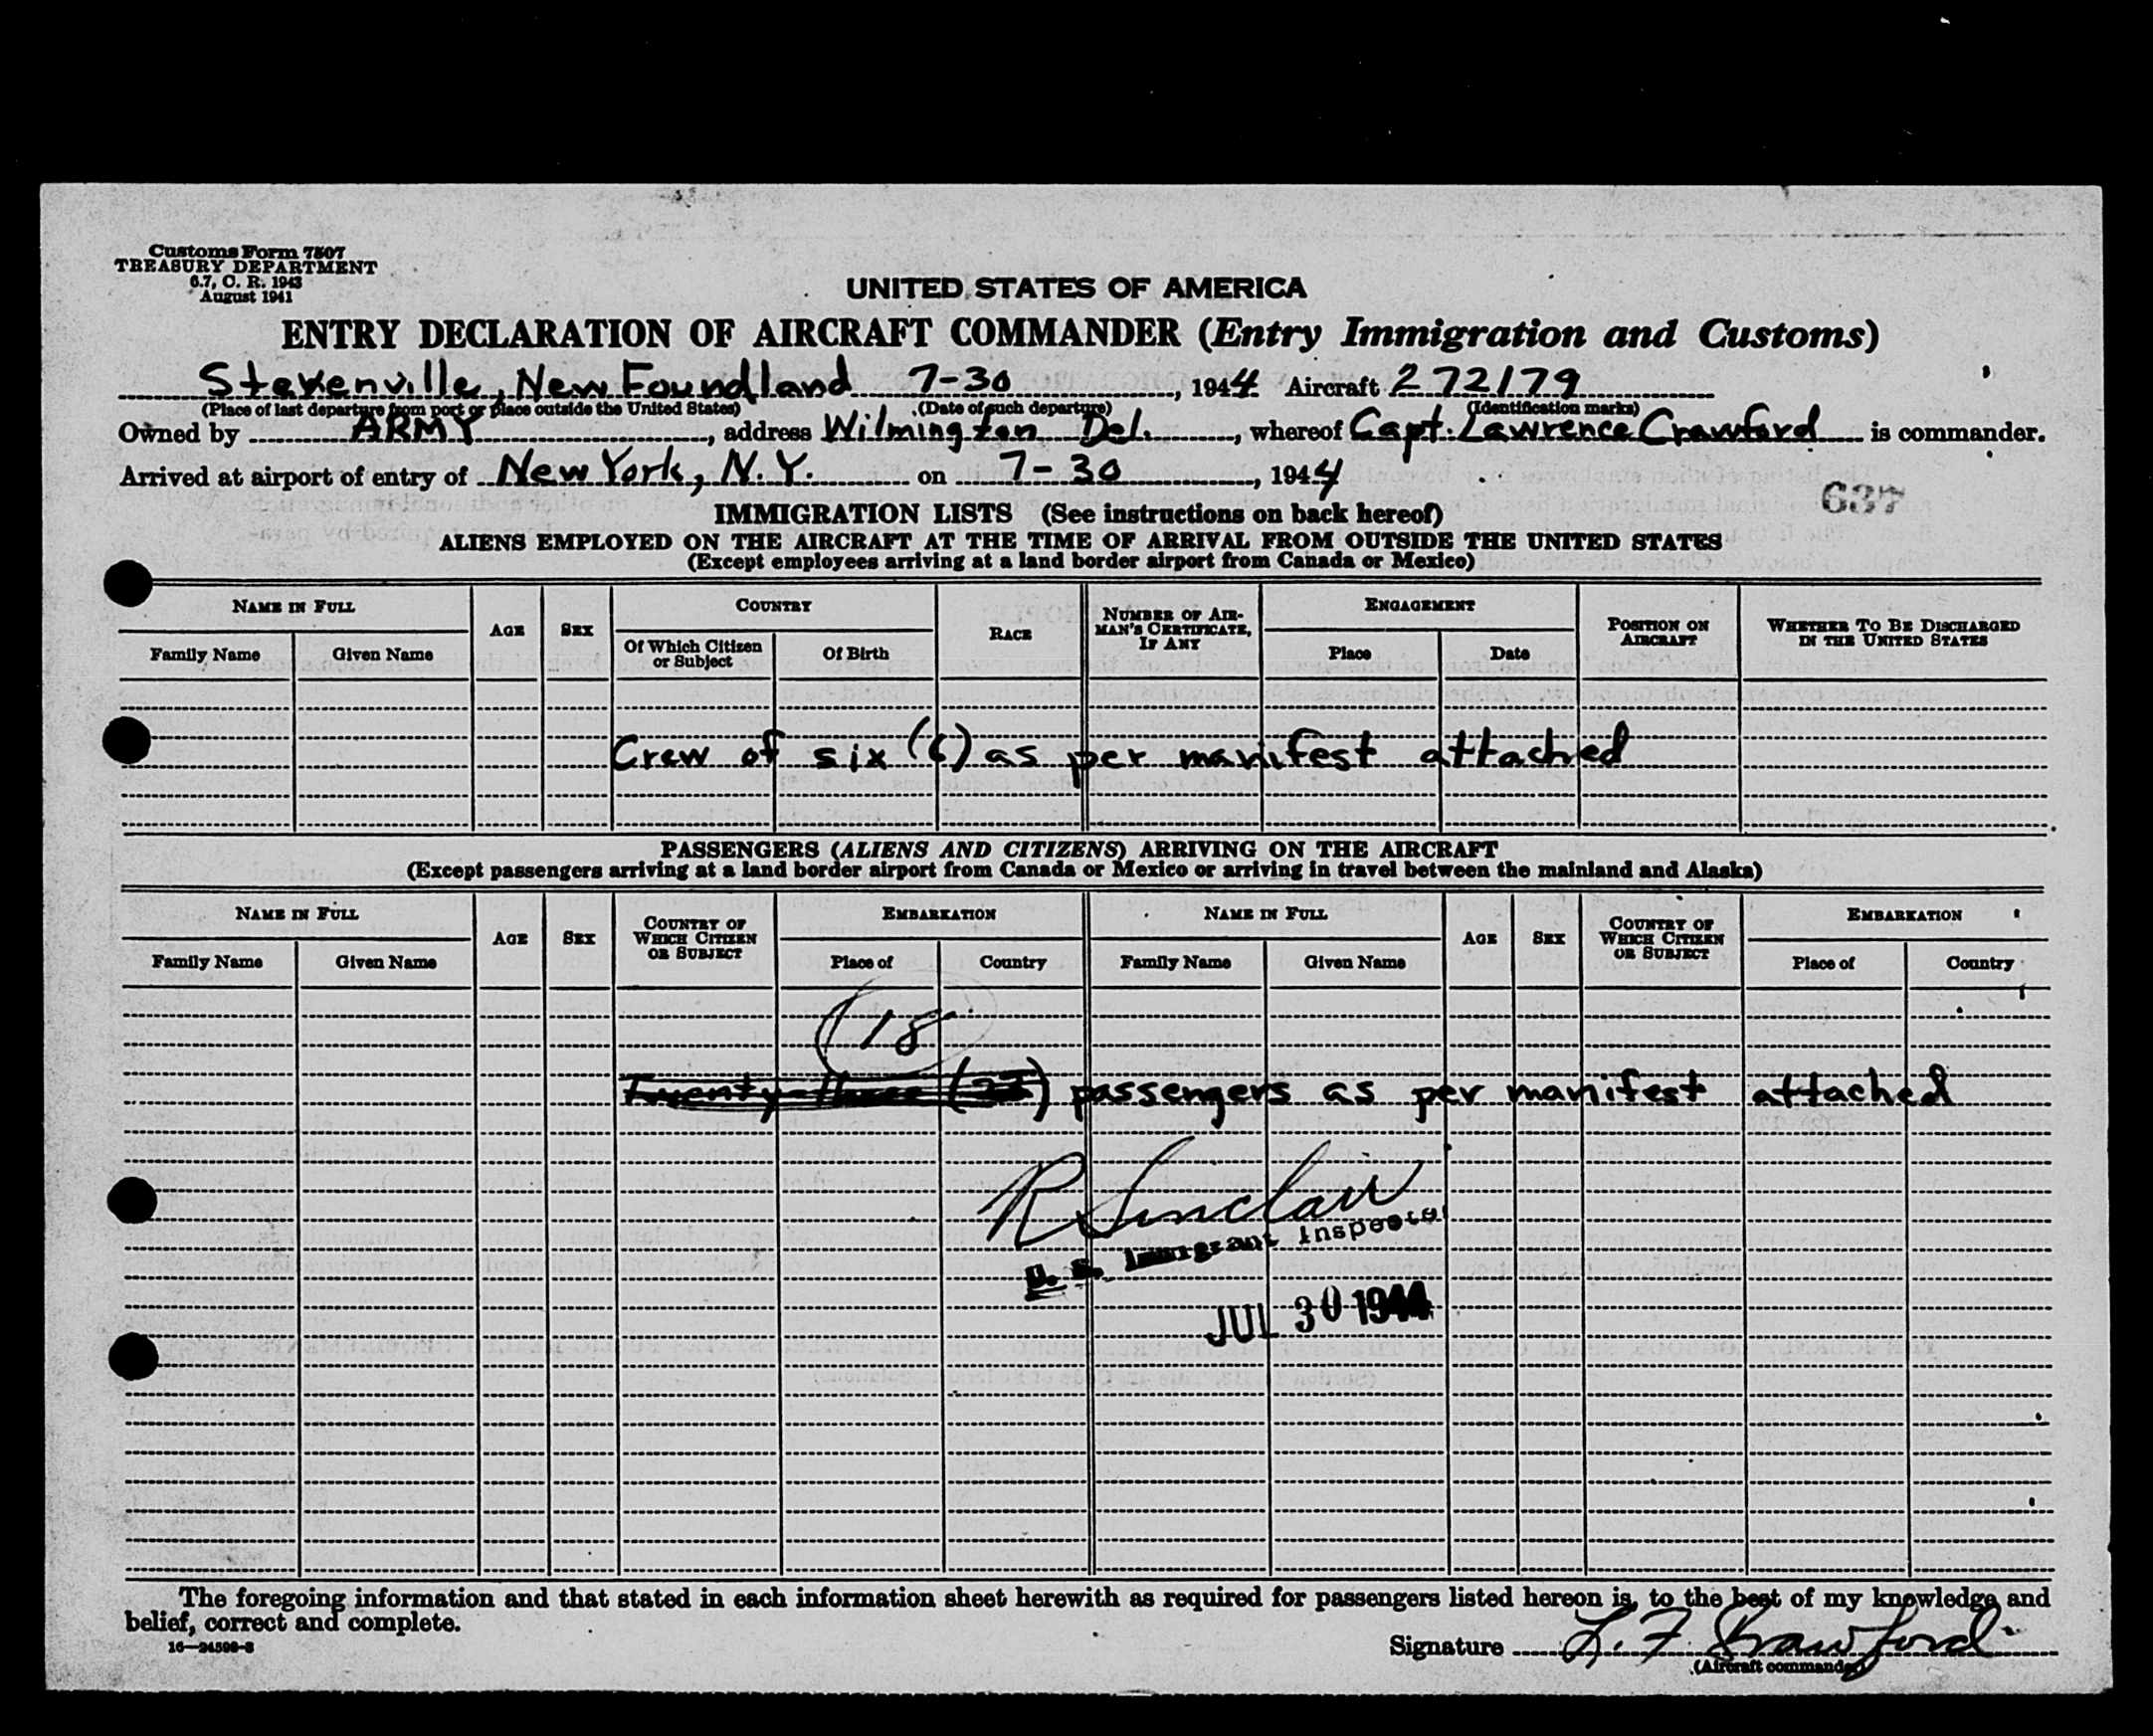 Customs Form 7507
TREASURY DEPARTMENT
6.7, C. R. 1943
August 1941
UNITED STATES OF AMERICA
ENTRY DECLARATION OF AIRCRAFT COMMANDER (Entry Immigration and Customs)
Stevenville, New Foundland 7-30, 1944 Aircraft 272179
(Place of last departure from port or place outside the United States) (Date of such departure) (Identification marks)
Owned by ARMY, address Wilmington Del., whereof Capt. Lawrence Crawford is commander.
Arrived at airport of entry of New York, N.Y. on 7-30, 1944
637
IMMIGRATION LISTS (See instructions on back hereof)
ALIENS EMPLOYED ON THE AIRCRAFT AT THE TIME OF ARRIVAL FROM OUTSIDE THE UNITED STATES
(Except employees arriving at a land border airport from Canada or Mexico)
NAME IN FULL AGE SEX COUNTRY RACE NUMBER OF AIRMAN'S CERTIFICATE, IF ANY ENGAGEMENT POSITION ON AIRCRAFT WHETHER TO BE DISCHARGED IN THE UNITED STATES
Family Name Given Name Of Which Citizen or Subject Of Birth Place Date
Crew of six (6) as per manifest attached
PASSENGERS (ALIENS AND CITIZENS) ARRIVING ON THE AIRCRAFT
(Except passengers arriving at a land border airport from Canada or Mexico or arriving in travel between the mainland and Alaska)
NAME IN FULL AGE SEX COUNTRY OF WHICH CITIZEN OR SUBJECT EMBARKATION NAME IN FULL AGE SEX COUNTRY OF WHICH CITIZEN OR SUBJECT EMBARKATION
Family Name Given Name Place of Country Family Name Given Name Place of Country
(18
Twenty-three (23) passengers as per manifest attached
R Sinclair
U. S. Immigrant Inspector
JUL 30 1944
The foregoing information and that stated in each information sheet herewith as required for passengers listed hereon is, to the best of my knowledge and
belief, correct and complete.
16—24599-3
Signature L. F. Crawford
(Aircraft commander)